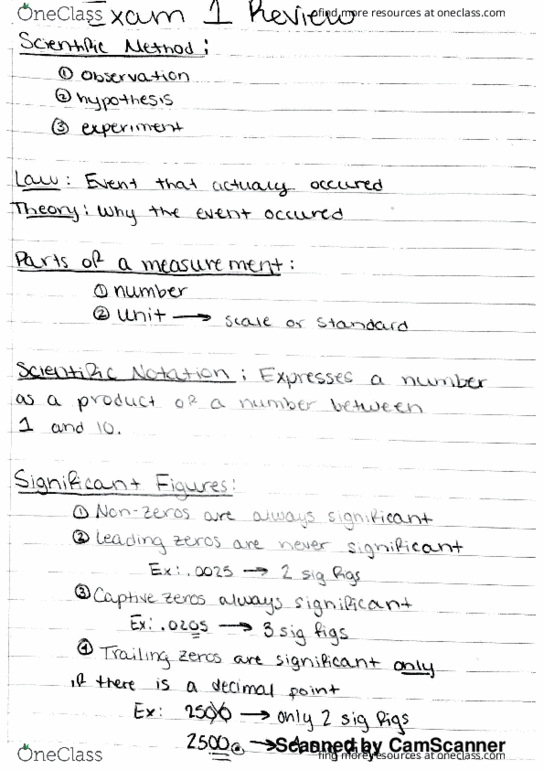 OneClass
Exam 1 Review
find more resources at oneclass.com
Scientific Method:
① observation
② hypothesis
③ experiment
Law: Event that actually occured
Theory: Why the event occured
Parts of a measurement:
① number
② unit → scale or standard
Scientific Notation: Expresses a number
as a product of a number between
1 and 10.
Significant Figures:
① Non-zeros are always significant
② Leading zeros are never significant
Ex: .0025 → 2 sig figs
③ Captive zeros always significant
Ex: .0205 → 3 sig figs
④ Trailing zeros are significant only
if there is a decimal point
Ex: 2500 → only 2 sig figs
2500. →
Scanned by CamScanner
OneClass
find more resources at oneclass.com